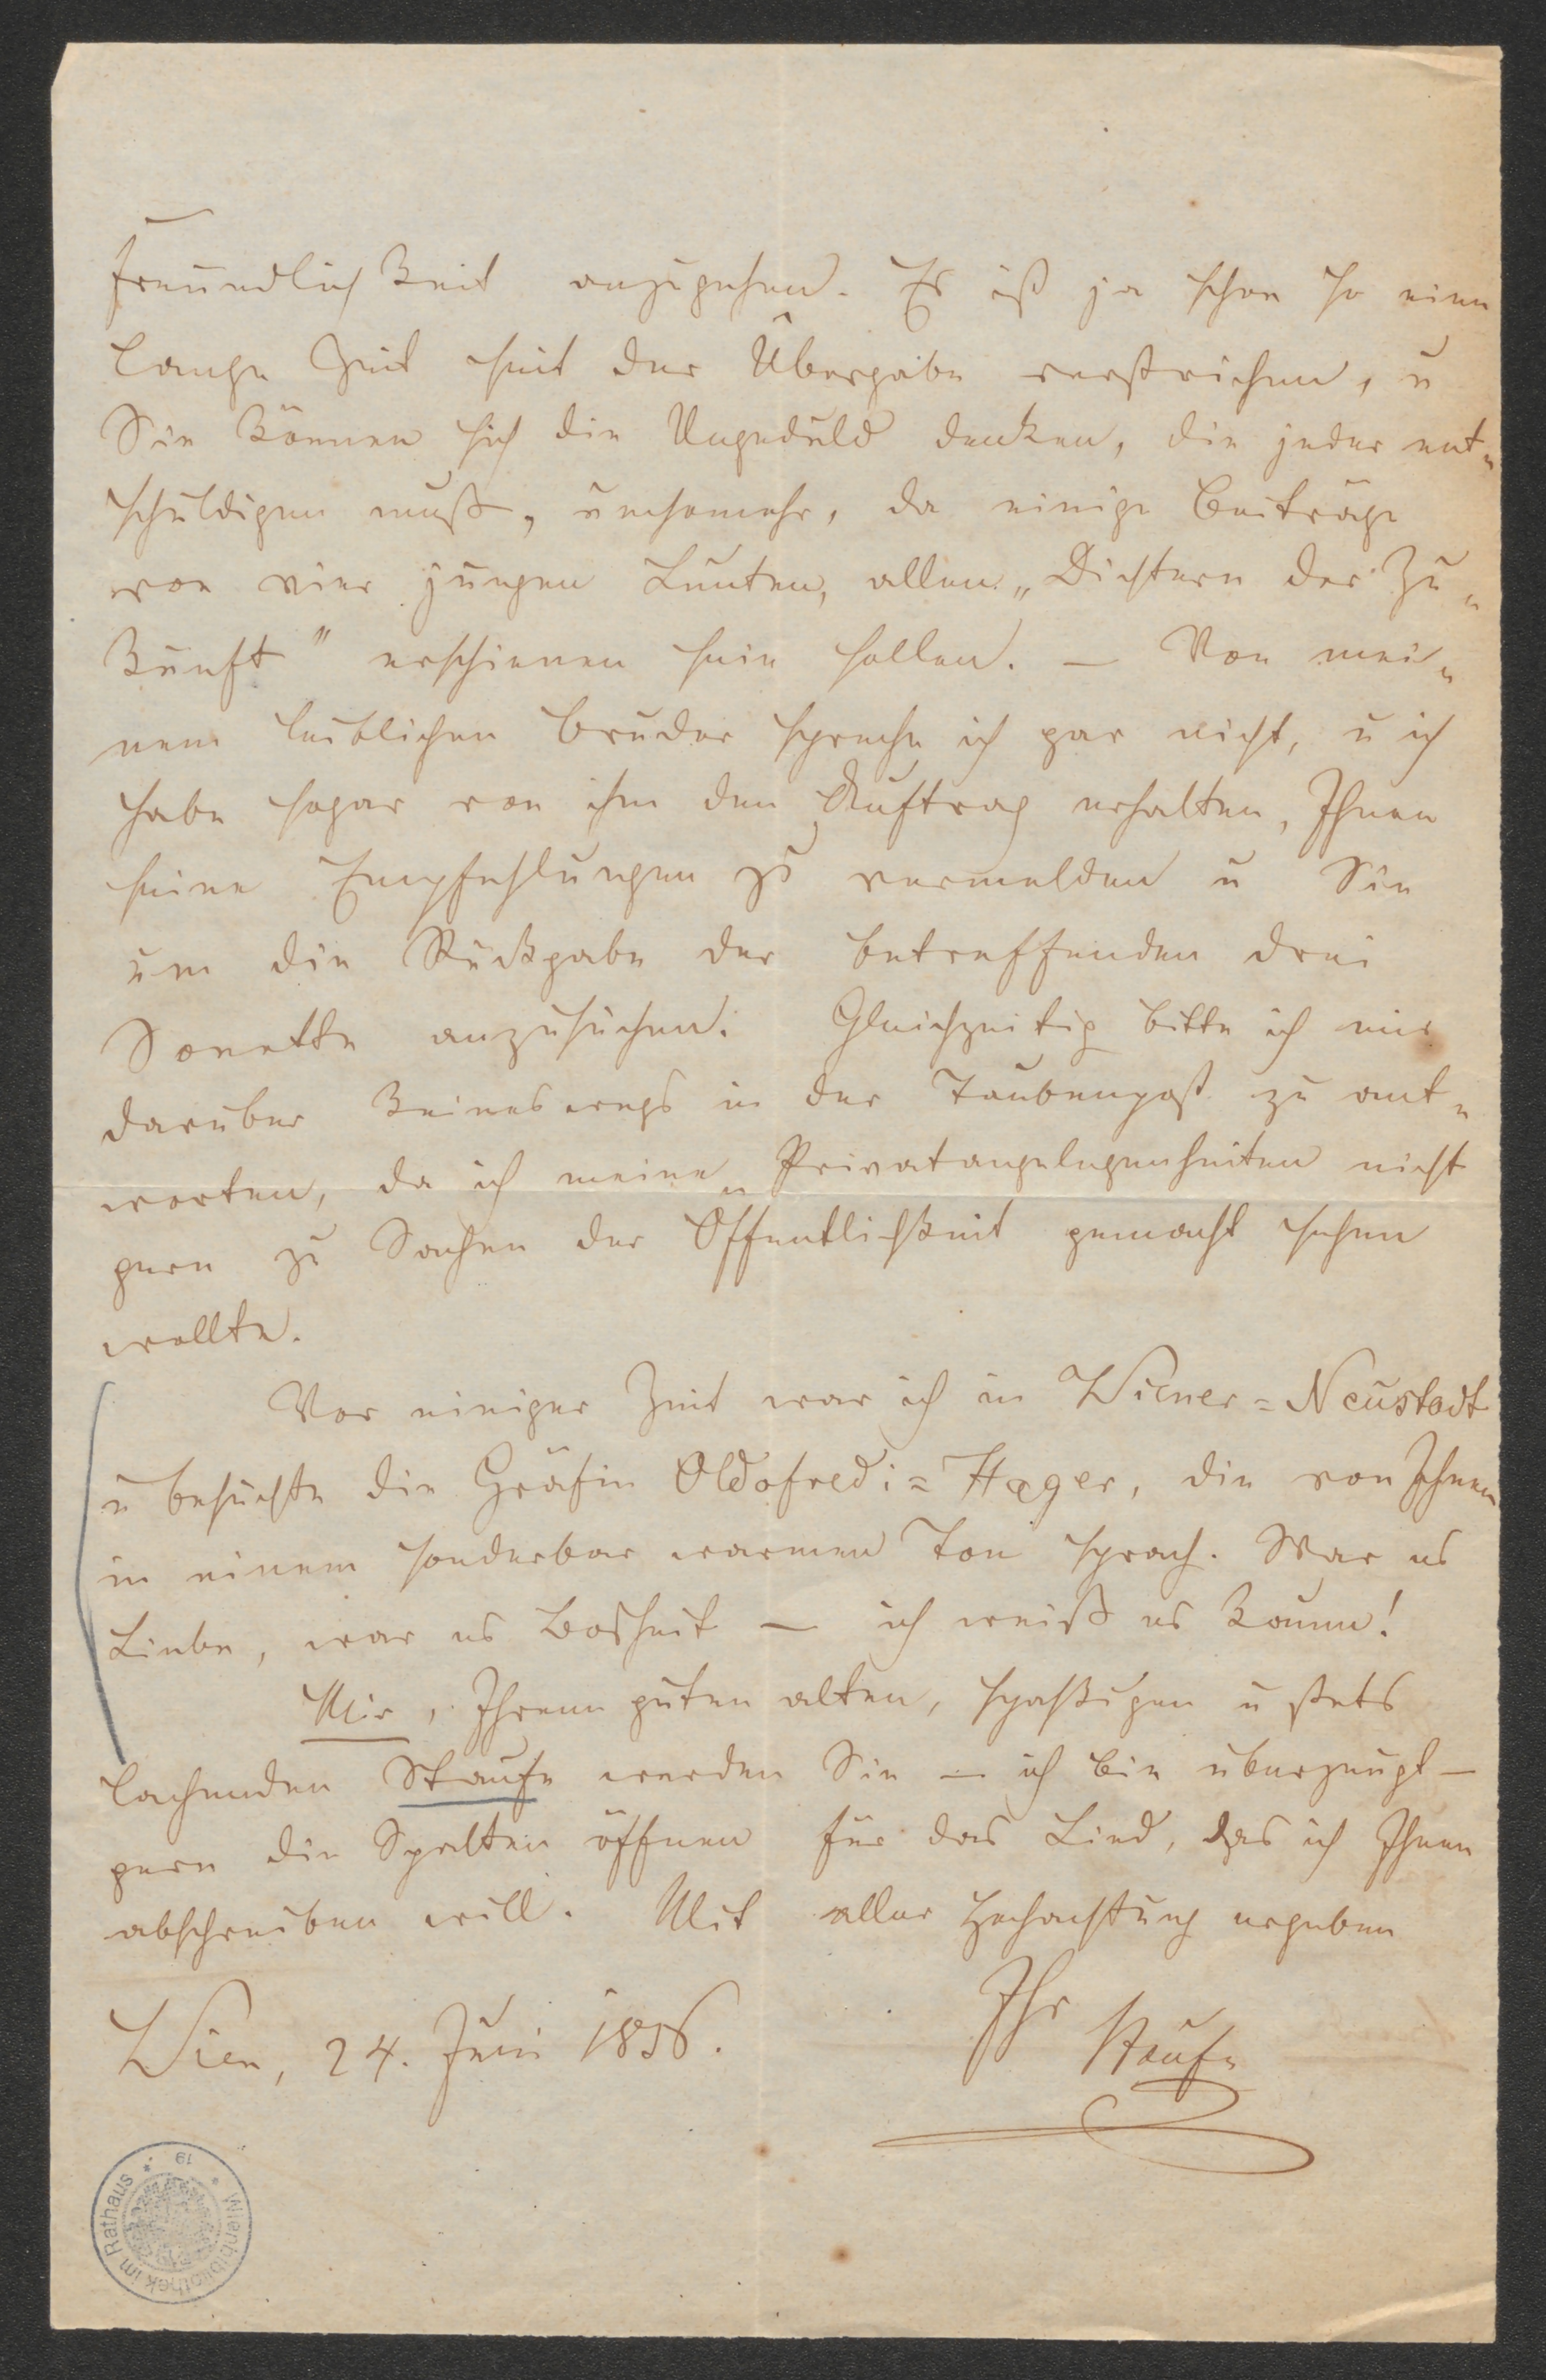 Freundlichkeit anzugehen. Es ist ja schon so eine
lange Zeit seit der Übergabe verstrichen, u
Sie können sich die Ungeduld denken, die jeder ent=
schuldigen muß, umsomehr, da einige Beiträge
von vier jungen Leuten, allen „Dichtern der Zu=
kunft" erschienen sein sollen. — Von mei=
nem leiblichen Bruder spreche ich gar nicht, u ich
habe sogar von ihm den Auftrag erhalten, Ihnen
seine Empfehlungen zu vermelden u Sie
um die Rückgabe der betreffenden drei
Sonette anzusuchen. Gleichzeitig bitte ich mir
darüber keineswegs in der Taubenpost zu ant=
worten, da ich meine Privatangelegenheiten nicht
gern zu Sachen der Öffentlichkeit gemacht sehen
wollte.
Vor einiger Zeit war ich in Wiener=Neustadt
u besuchte die Gräfin Oldofredi=Hager, die von Ihnen
in einem sonderbar warmen Ton sprach. War es
Liebe, war es Bosheit — ich weiß es kaum!
Mir, Ihrem guten alten, spaßigen u stets
lachenden Staufe werden Sie — ich bin überzeugt —
gern die Spalten öffnen für das Lied, das ich Ihnen
abschreiben will. Mit aller Hochachtung ergeben
Ihr
Wien, 24. Juni 1856.
Staufe
Wienbibliothek im Rathaus
19